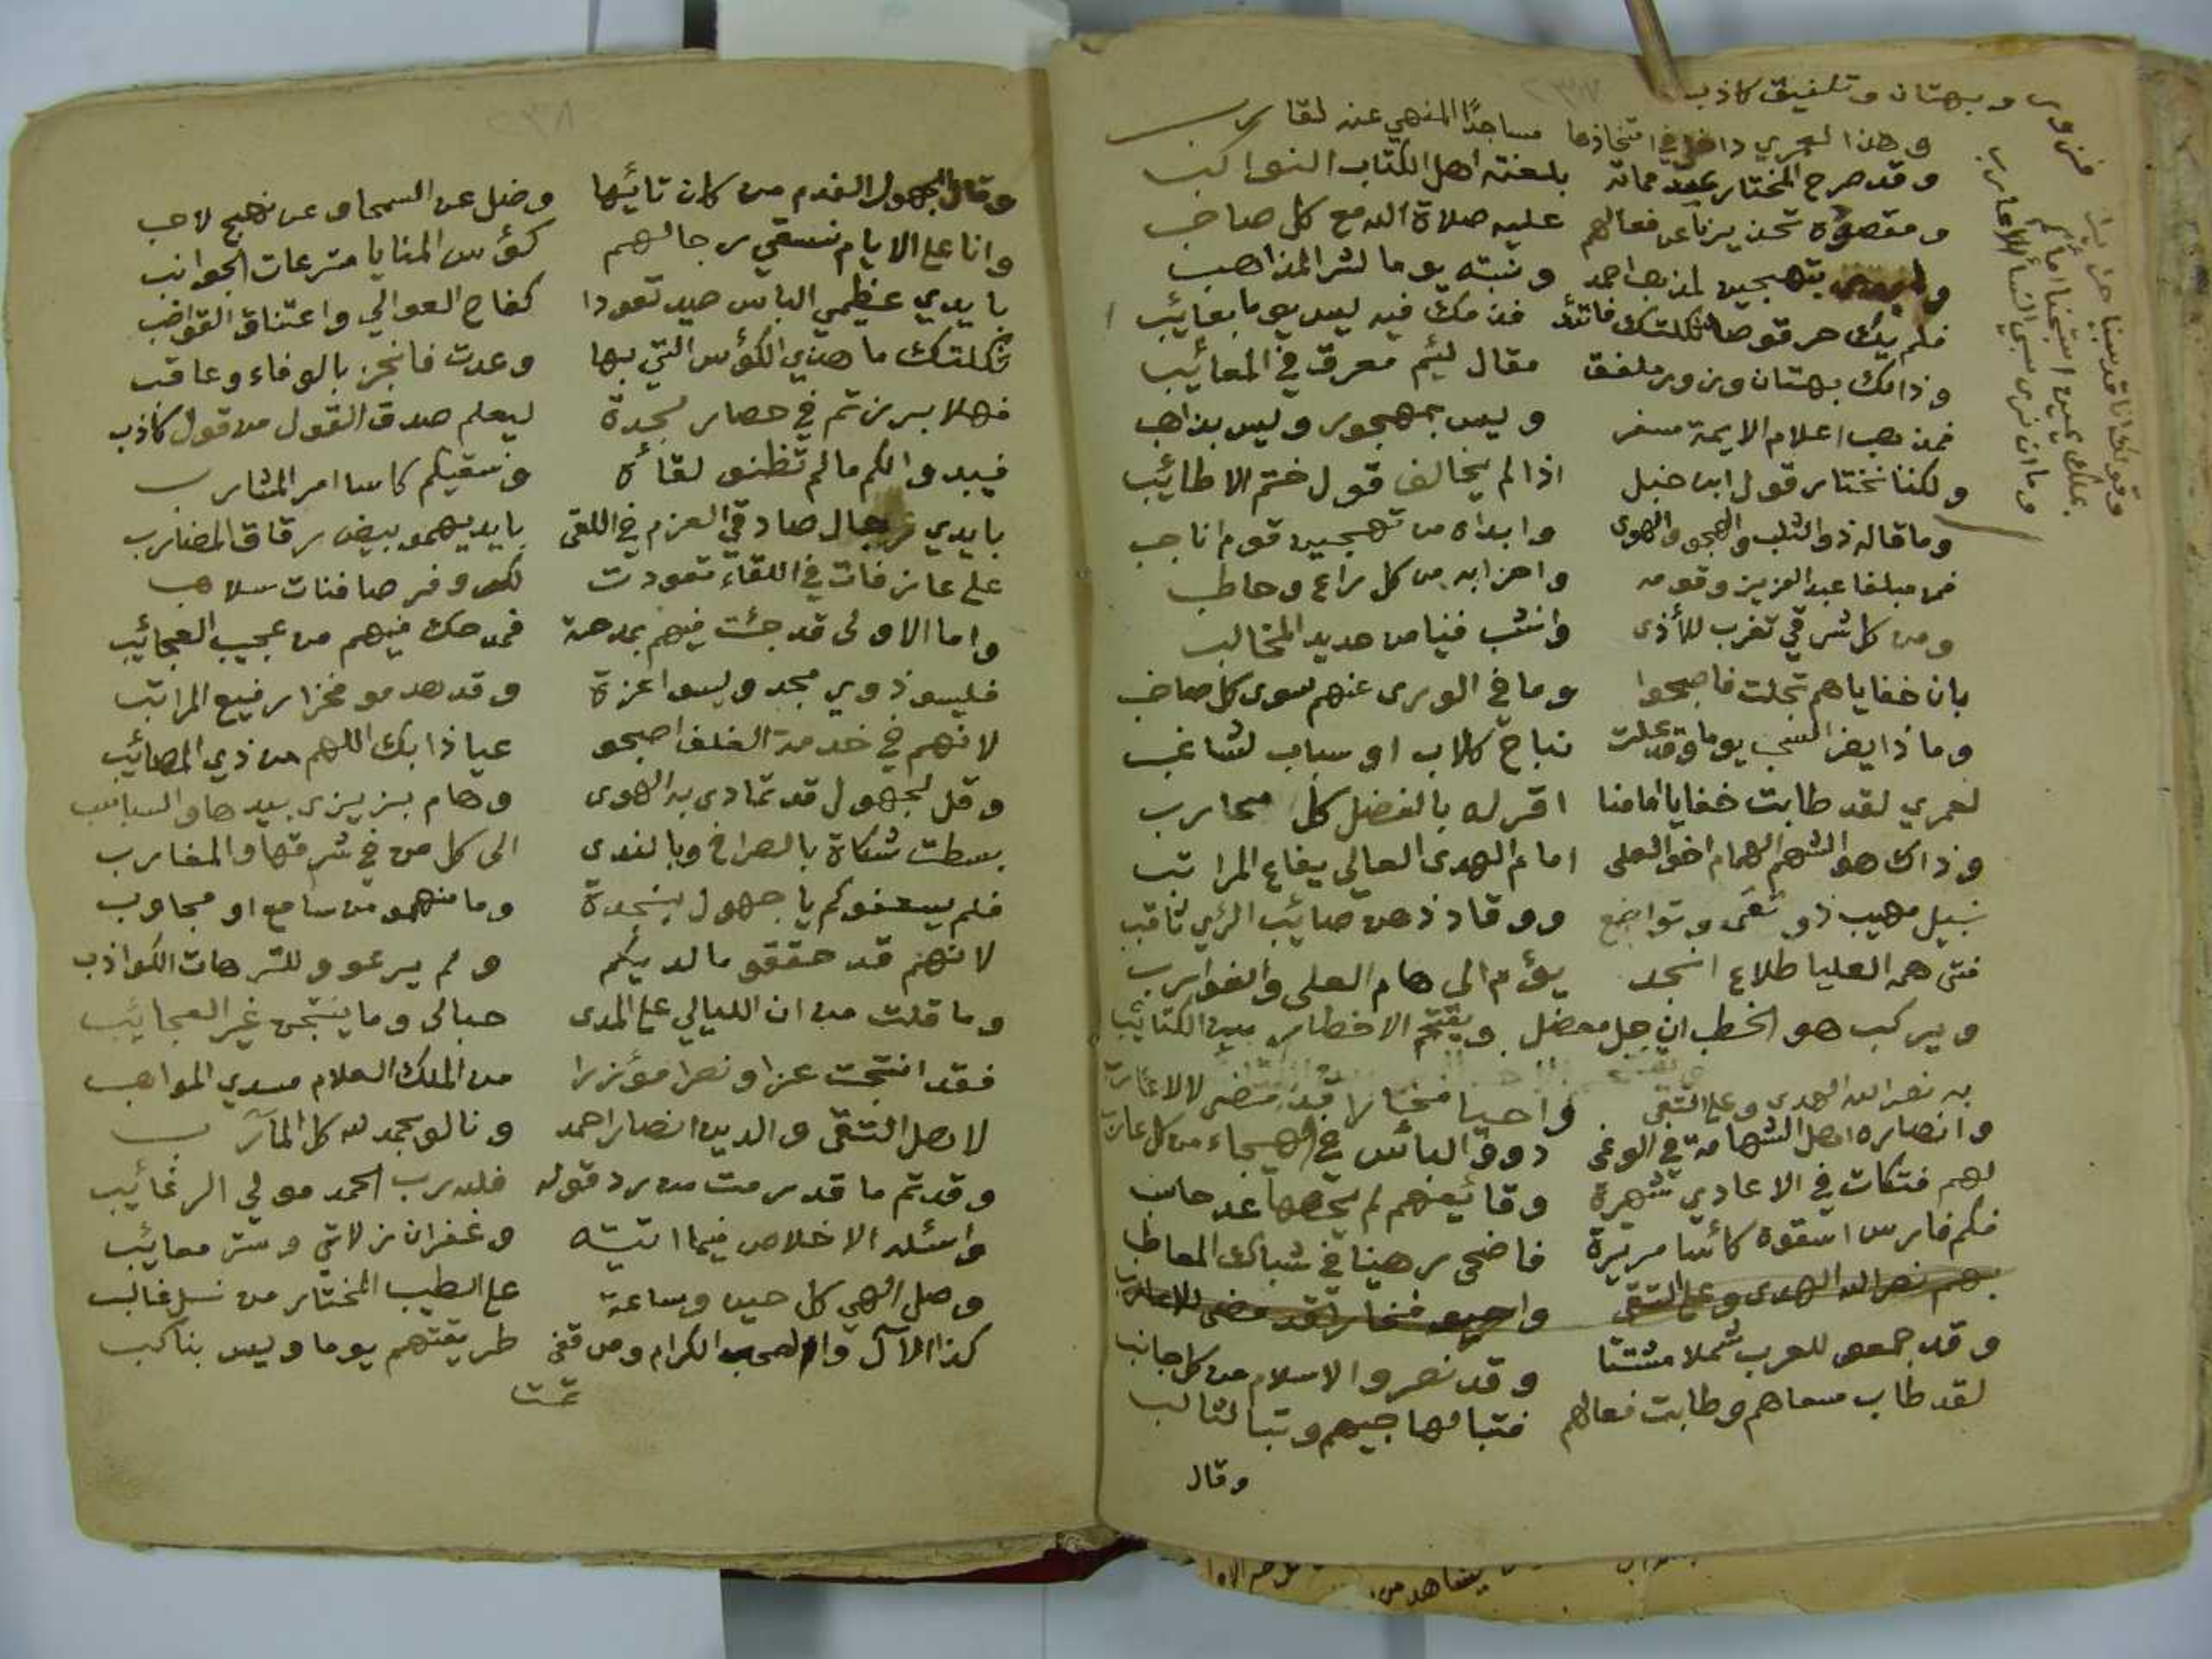 فزور وبهتان وتلفيق كاذب
وقولك انا قد سبينا حريما
بملك يمين استبحنا اماكم
وما ان نرى سبي النسأ للاعارب
وهذا لعمري داخل في اتخاذها مساجدًا المنهي عنه لقارب
وقد صرح المختار عند مماته بلعنته اهل الكتاب النواكب
ومقصوده تحذيرنا عن فعالهم عليه صلاة الله مع كل صاحب
بتهجين لمذهب احمد ونسبته يوما لشر المذاهب
فلم يك حرقوصا ثكلتك فاتئد فذمك فيه ليس يوما بعائب
وذا منك بهتان وزور ملفق مقال لئيم معرق في المعائب
فمذهب اعلام الايمة مسفر وليس بمهجور وليس بذاهب
ولكننا نختار قول ابن حنبل اذا لم يخالف قول ختم الاطائب
وما قاله ذو الثلب والهجو والهوى وابداه من تهجين قوم اناجب
فمن مبلغا عبد العزيز وقومه واحزابه من كل راع وحاطب
ومن كل شرقي تغرب للأذى وانشب فينا من حديد المخالب
بان خفاياهم تجلت فاصبحوا وما في الورى عنهم سوى كل صاخب
وماذا يضر السحب يوما وقد علت نباح كلاب او سباب لشاغب
لعمري لقد طابت خفايا امامنا اقر له بالفضل كل محارب
وذاك هو الشهم الهمام اخو العلى امام الهدى العالي يفاع المراتب
نبيل مهيب ذو تقى وتواضع ووقاد ذهن صائب الرئي ثاقب
فتى همه العليا طلاع انجد يؤم الى هام العلى والغوارب
ويركب هو الخطب ان جل معضل ويقتحم الاخطار بين الكتائب
به نصر الله الهدى وعلى التقى واحيا فخارا قد مضى لالاعارب
وانصاره اهل الشهامة في الوغى ذوو البأس في الهيجاء من كل عارب
لهم فتكات في الاعادي شهيرة وقائعهم لم يحصها عد حاسب
فكم فارس اسقوه كأسا مريرة فاضحى رهينا في شباك المعاطب
بهم نصر الله الهدى وعلى التقى واحيو فخارا قد مضى للاعارب
وقد جمعو للعرب شملا مشتتا وقد نصروا الاسلام من كل جانب
لقد طاب مسعاهم وطابت فعالهم فتبا لهاجيهم وتبا لثالب
وقال
وقال الجهول الفدم من كان تائها وضل عن السمحا وعن نهج لاحب
وانا على الايام نسقي رجالهم كؤس المنايا مترعات الجوانب
بايدي عظيمي الباس صيد تعودا كفاح العوالي واعتناق القواضب
ثكلتك ما هذي الكؤس التي بها وعدت فانجز بالوفاء وعاقب
فهلا برزتم في حصار لجدة ليعلم صدق القول من قول كاذب
فيبدو الكم مالم تظنو لقأه ونسقيكم كاسا امر المشارب
بايدي رجال صادقي العزم في اللقى بايديهمو بيض رقاق المضارب
على عازفات في اللقاء تعودت لكر وفر صافنات سلاهب
واما الاولى قد جئت فيهم بمدحة فمدحك فيهم من عجيب العجائب
فليسو ذوي مجد وليسوا عزة وقد هدمو فخرا رفيع المراتب
لانهم في خدمة الغلف اصبحو عياذا بك اللهم من ذي المصائب
وقل لجهول قد تمادى به الهوى وهام بزيزى بيدها والسباسب
بسطت شكاة بالصراخ وبالندى الى كل من في شرقها والمغارب
فلم يسعفوكم يا جهول بنجدة وما منهمو من سامع او مجاوب
لانهم قد حققو ما لديكم ولم يرعوو للترهات الكواذب
وما قلت من ان الليالي على المدى حبالى وما ينتجن غير العجائب
فقد انتجت عزا ونصرا مؤزرا من الملك العلام مسدي المواهب
لاهل التقى والدين انصار احمد ونالو بحمد لله كل المآرب
وقد تم ما قد رمت من رد قوله فلله رب الحمد مولي الرغائب
واسئله الاخلاص فيما اتيته وغفران زلاتي وستر معائب
وصل الهي كل حين وساعة على الطيب المختار من نسل غالب
كذا الآل والصحب الكرام ومن قفى طريقتهم يوما وليس بناكب
تمت